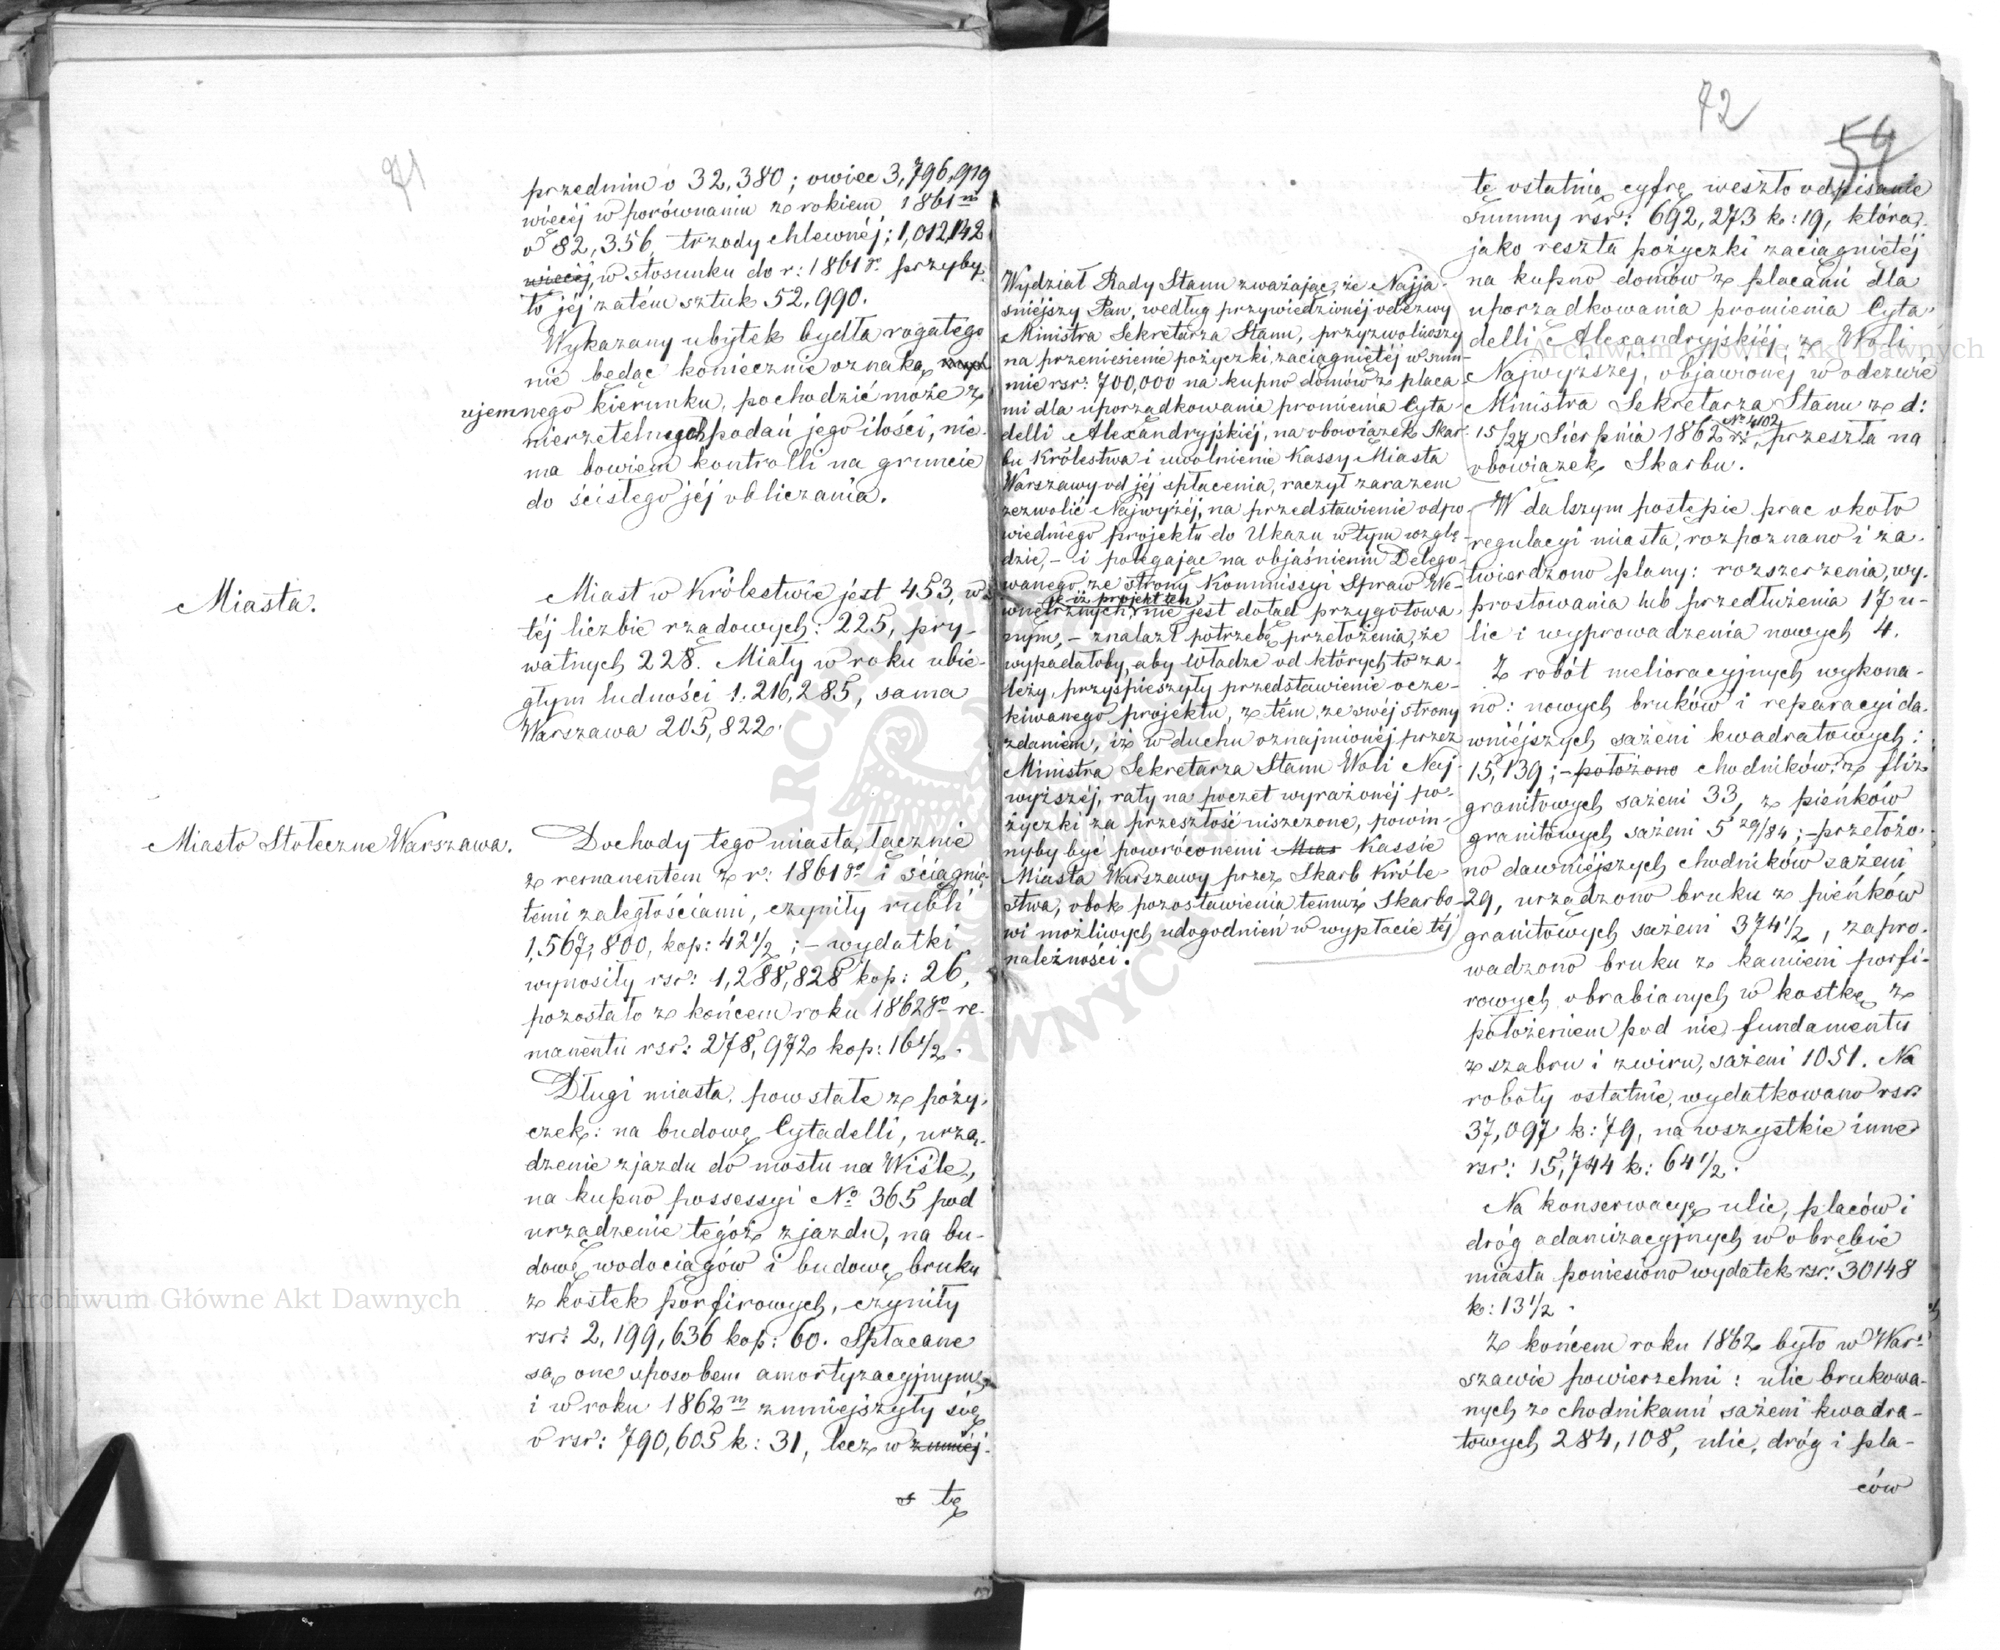 71
przednim o 32,380; owiec 3,796,919
więcéj w porównaniu z rokiem 1861m
o 82,356, trzody chlewnéj; 1,012,142
więcéj, w stosunku do r: 1861go przyby-
ło jéj zatém sztuk 52,990.
Wykazany ubytek bydła rogatego
nie będąc koniecznie oznaką
ujemnego kierunku, pochodzić może z
nierzetelnych podań jego ilości, nie-
ma bowiem kontrolli na gruncie
do ścisłego jéj obliczania.
Miasta.
Miast w Królestwie jest 453, w
téj liczbie rządowych: 225, pry-
watnych 228. Miały w roku ubie-
głym ludności 1.216,285, sama
Warszawa 205,822.
Miasto Stołeczne Warszawa.
Dochody tego miasta, łącznie
z remanentem z r: 1861go i ściągnię-
temi zaległościami, czyniły rubli
1,567,800, kop: 42½; – wydatki
wynosiły rsr: 1,288,828 kop: 26,
pozostało z końcem roku 1862go re-
manentu rsr: 278,972 kop: 16½.
Długi miasta, powstałe z poży-
czek: na budowę Cytadelli, urzą-
dzenie zjazdu do mostu na Wiśle,
na kupno possessyi No 365 pod
urządzenie tegóż zjazdu, na bu-
dowę wodociągów i budowę bruku
z kostek porfirowych, czyniły
rsr: 2,199,636 kop: 60. Spłacane
są one sposobem amortyzacyjnym,
i w roku 1862m zmniejszyły się
o rsr: 790,605 k: 31, lecz w zmniéj-
s tę
Wydział Rady Stanu zważając, że Najja-
śniéjszy Pan, według przywiedzionéj odezwy
Ministra Sekretarza Stanu, przyzwoliwszy
na przeniesienie pożyczki, zaciągniętéj w sum-
mie rsr: 700,000 na kupno domów z placa-
mi dla uporządkowania promienia Cyta-
delli Alexandryjskiéj, na obowiązek Skar-
bu Królestwa i uwolnienie Kassy Miasta
Warszawy od jéj spłacenia, raczył zarazem
zezwolić Najwyżéj, na przedstawienie odpo-
wiedniego projektu do Ukazu w tym wzglę-
dzie, – i polegając na objaśnieniu Delego-
wanego ze strony Kommissyi Spraw We-
że iż projekt ten
wnętrznych, nie jest dotąd przygotowa-
nym, – znalazł potrzebę przełożenia, że
wypadałoby, aby Władze od których to za-
leży, przyśpieszyły przedstawienie ocze-
kiwanego projektu, z tém, ze swéj strony
zdaniem, iż w duchu oznajmionéj przez
Ministra Sekretarza Stanu Woli Naj-
wyższéj, raty na poczet wyrażonéj po-
życzki za przeszłość uiszczone, powin-
nyby być powróconemi Mias Kassie
Miasta Warszawy przez Skarb Króle-
stwa, obok pozostawienia temuż Skarbo-
wi możliwych udogodnień w wypłacie téj
należności.
72
54
tę ostatnią cyfrę weszło odpisanie
Summy rsr: 692,273 k: 19, która,
jako reszta pożyczki zaciągniętéj
na kupno domów z placami dla
uporządkowania promienia Cyta-
delli Alexandryjskiéj, z Woli
Najwyższéj, objawionéj w odezwie
Ministra Sekretarza Stanu z d:
No 4102
15/27 Sierpnia 1862 r:, przeszła na
obowiązek Skarbu.
W dalszym postępie prac około
regulacyi miasta, rozpoznano i za-
twierdzono plany: rozszerzenia, wy-
prostowania lub przedłużenia 17 u-
lic i wyprowadzenia nowych 4.
Z robót melioracyjnych wykona-
no: nowych bruków i reparacyi da-
wniéjszych sażeni kwadratowych:
15,139; – położono chodników: z fliz
granitowych sażeni 33, z pieńków
granitowych sażeni 5 29/84; – przełożo-
no dawniéjszych chodników sażeni
29, urządzono bruku z pieńków
granitowych sażeni 374½, zapro-
wadzono bruku z kamieni porfi-
rowych obrabianych w kostkę z
położeniem pod nie fundamentu
z szabru i zwiru, sażeni 1051. Na
roboty ostatnie, wydatkowano rsr:
37,097 k: 79, na wszystkie inne
rsr: 15,744 k: 64½.
Na konserwacyę ulic, placów i
dróg adamizacyjnych w obrębie
miasta poniesiono wydatek rsr: 30148
k: 13½.
Z końcem roku 1862 było w War-
szawie powierzchni: ulic brukowa-
nych z chodnikami sażeni kwadra-
towych 284,108, ulic, dróg i pla-
ców
Archiwum Główne Akt Dawnych
Archiwum Główne Akt Dawnych